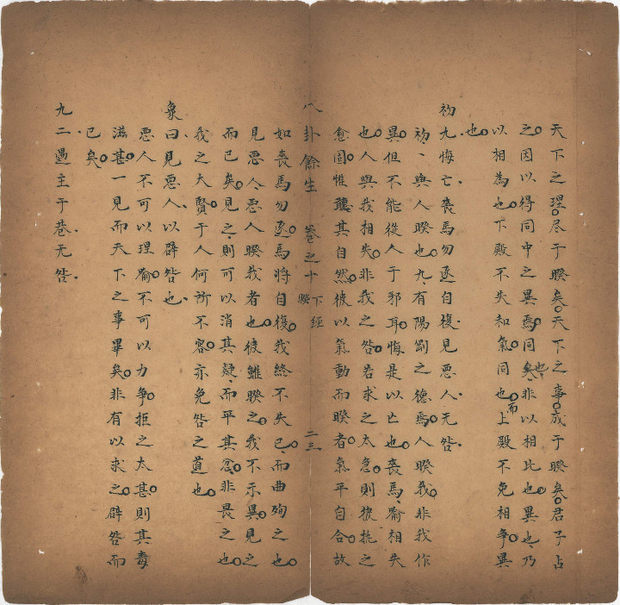 天下之理尽于睽矣天下之事成于睽矣君子占
之因以得同中之異焉同矣非以相比也異也乃
也
以相為也下殿不失和氣同也上殿不免相争異
而
也
初九悔亡喪馬勿逐自復見惡人无咎
初、與人睽也九、有陽剛之德焉人睽我非我作
異但不能從人于邪耳悔是以亡也喪馬喻相失
也人與我相失非我之咎若求之太急則猜之
愈固惟聽其自然彼以氣動而睽者氣平自合故
八卦餘生 卷之十 下經 睽 二三
如喪馬勿逐馬將自復我終不失已而曲殉之也
見惡人惡人睽我者也彼雖睽之我不示異見之
而已矣見之則可以消其疑而平其忿非畏之也
我之大賢于人何所不容亦免咎之道也
象曰見惡人以辟咎也
惡人不可以理喻不可以力争拒之太甚則其毒
滋甚一見而天下之事畢矣非有以求之辟咎而
已矣
九二遇主于巷无咎